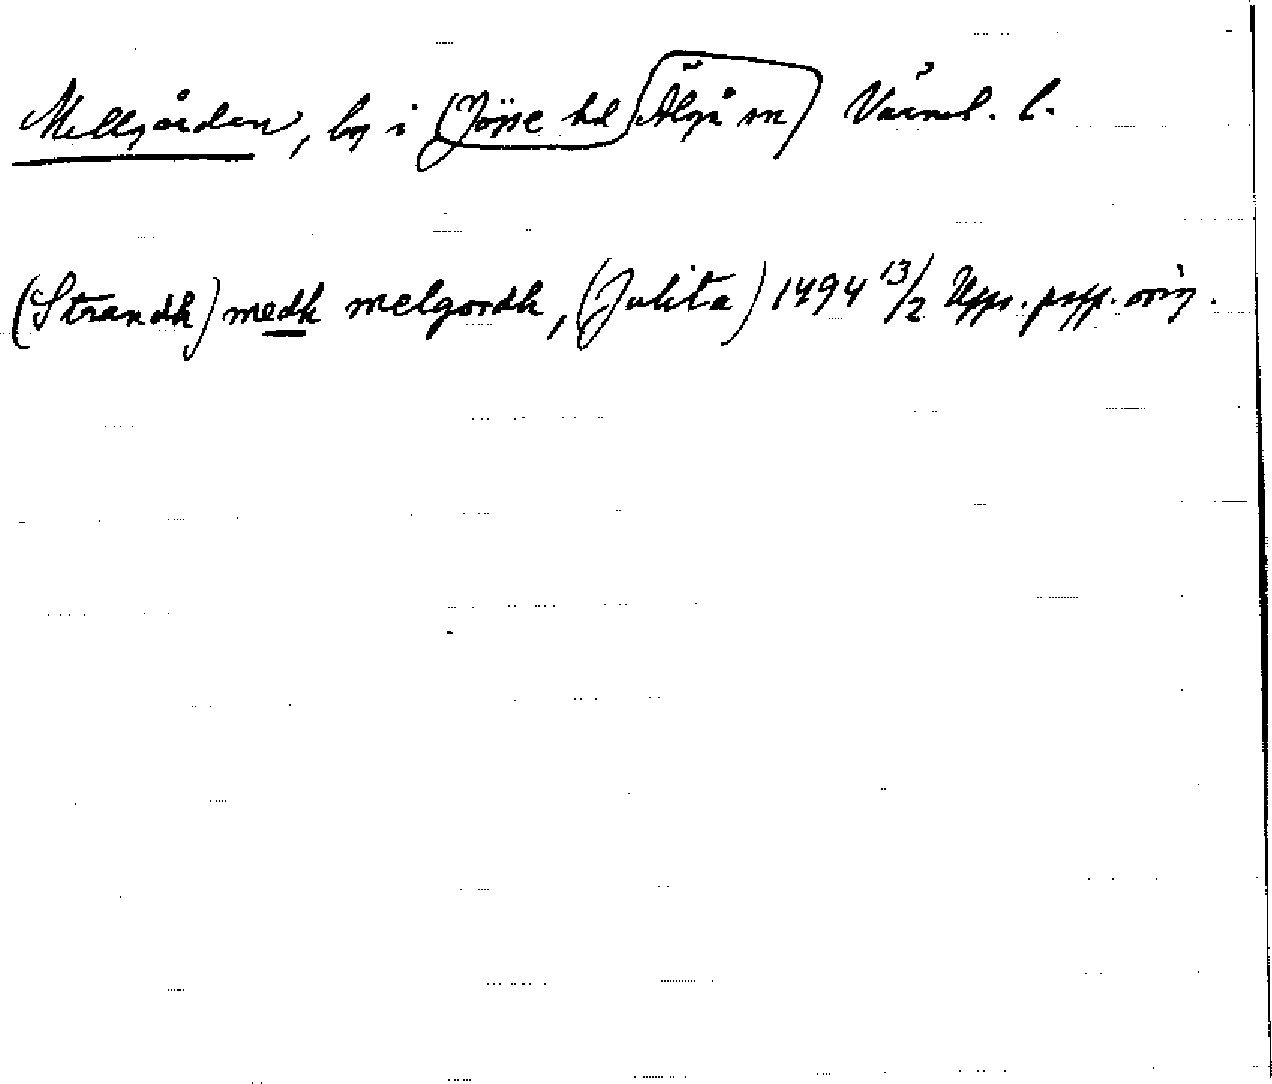 Mellgården, by i (Jösse hd (Älgå sn) Värml. l.
(Strandh) medh melgordh, (Julita) 1494 13/2 Upps. papp. orig.